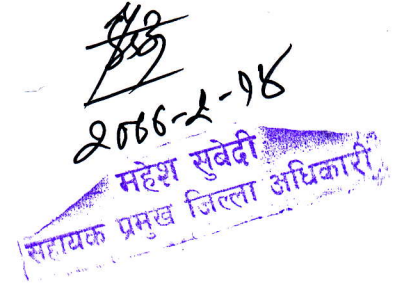 २०७६-२-१४
महेश सुवेदी
सहायक प्रमुख जिल्ला अधिकारी